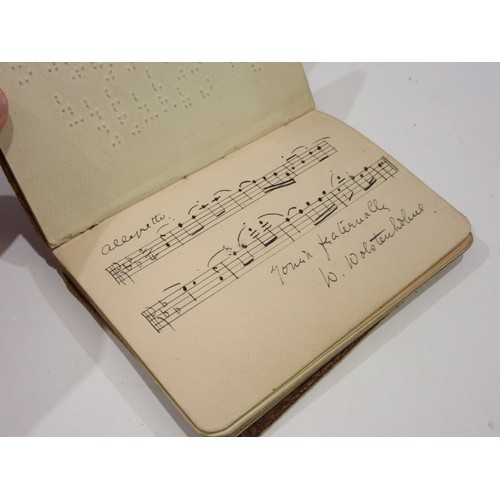 Allegretto.
Yours fraternally
W. Wolstenholme